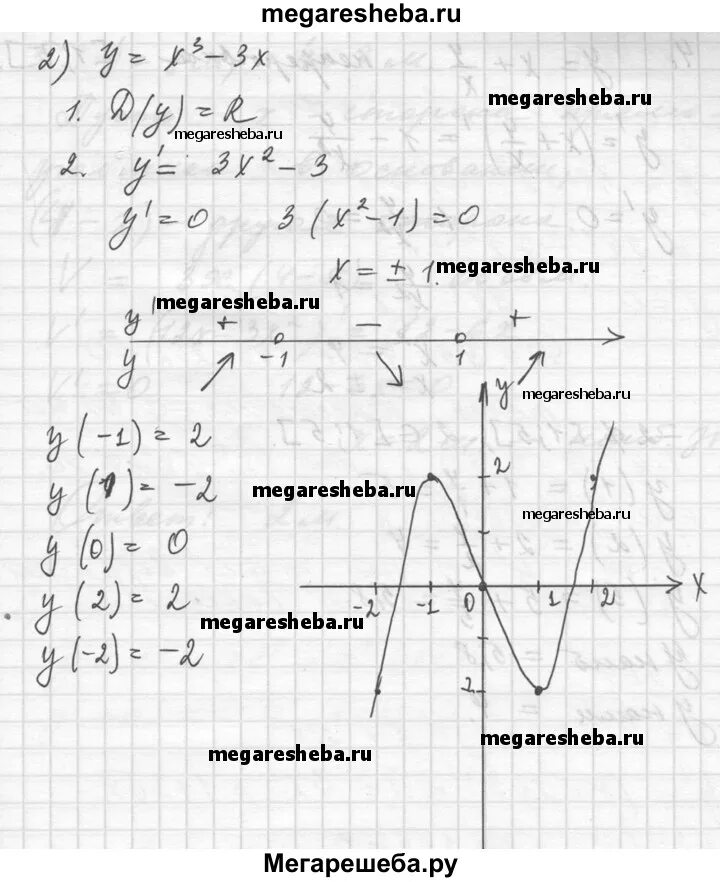 megaresheba.ru
2) y = x³ - 3x
megaresheba.ru
1. D(y) = R
megaresheba.ru
2. y' = 3x² - 3
y' = 0 3(x² - 1) = 0
x = ± 1.
megaresheba.ru
megaresheba.ru
y' + - +
y -1 1
y
megaresheba.ru
y(-1) = 2
2
y(1) = -2
megaresheba.ru
megaresheba.ru
y(0) = 0
x
-2 -1 0 1 2
y(2) = 2
megaresheba.ru
y(-2) = -2
2
megaresheba.ru
megaresheba.ru
Мегарешеба.ру